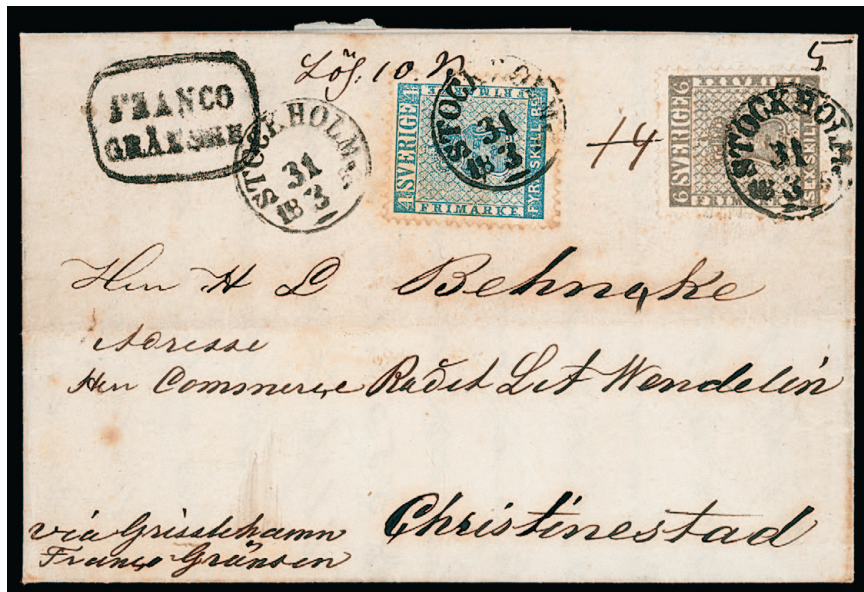 5
Lös. 10.
FRANCO
GRÄNSEN
STOCKHOLM
31
3
18
SVERIGE
FYRA SKILL. BCO
FRIMÄRKE
4
STOCKHOLM
31
3
18
14
6 SVERIGE 6
SEX SKILL. BCO
FRIMÄRKE
6
STOCKHOLM
31
3
18
Herr H L Behncke
Adresse
Herr Commerce Rådet Lit Wendelin
Christinestad
via Grisslehamn
Franco Gränsen